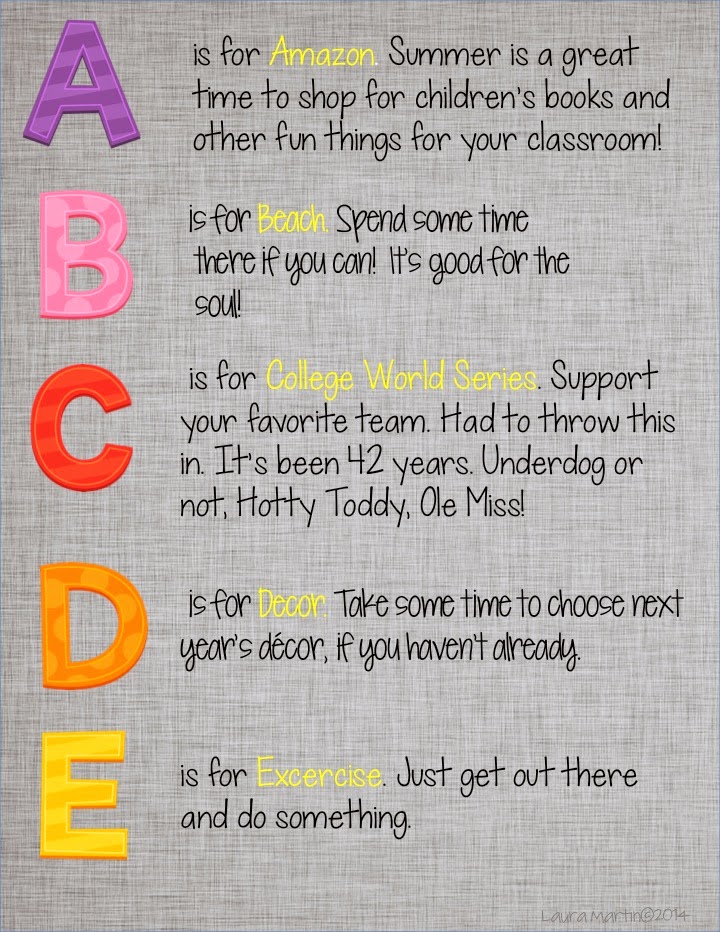 A is for Amazon. Summer is a great
time to shop for children's books and
other fun things for your classroom!
B is for Beach. Spend some time
there if you can! It's good for the
soul!
C is for College World Series. Support
your favorite team. Had to throw this
in. It's been 42 years. Underdog or
not, Hotty Toddy, Ole Miss!
D is for Decor. Take some time to choose next
year's décor, if you haven't already.
E is for Excercise. Just get out there
and do something.
Laura Martin©2014